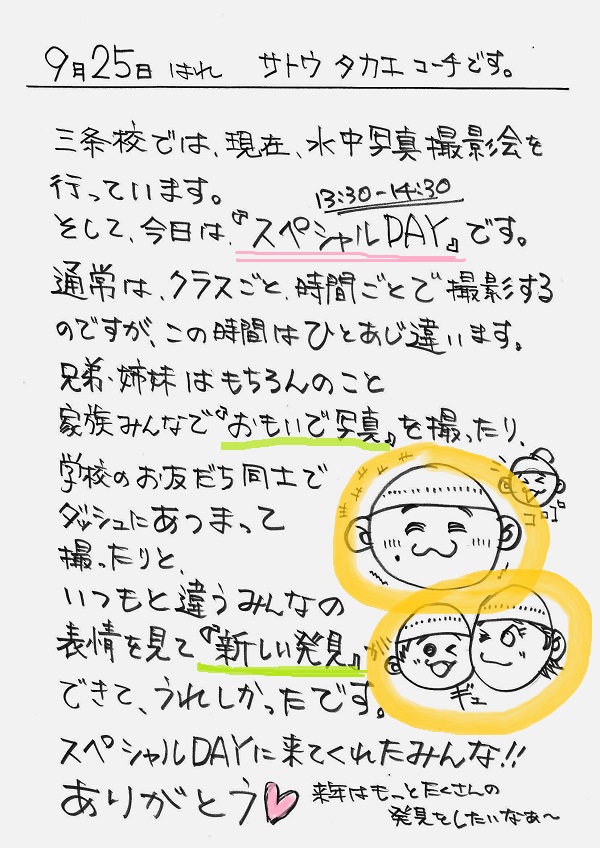 9月25日 はれ サトウ タカエ コーチです。
三条校では、現在、水中写真撮影会を
行っています。
13:30-14:30
そして、今日は、『スペシャルDAY』です。
通常は、クラスごと、時間ごとで撮影する
のですが、この時間はひとあじ違います。
兄弟・姉妹はもちろんのこと
家族みんなで『おもいで写真』を撮ったり、
学校のお友だち同士で
ダッシュにあつまって
撮ったりと、
いつもと違うみんなの
表情を見て『新しい発見』
できて、うれしかったです。
ギュ
スペシャルDAYに来てくれたみんな!!
ありがとう
来年はもっとたくさんの
発見をしたいなぁ〜